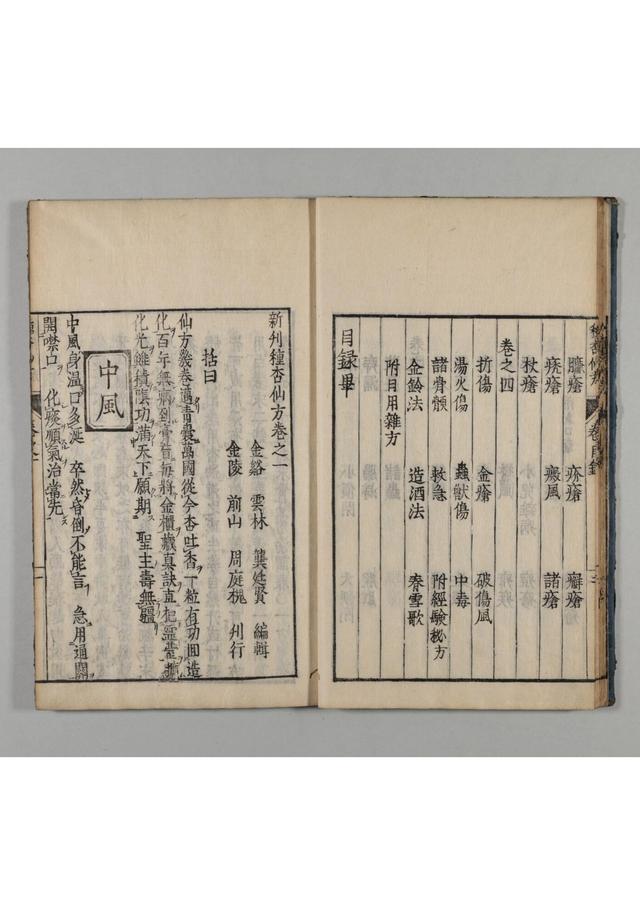 臁瘡 疥瘡 癬瘡
癜風 諸瘡
杖瘡
卷之四
折傷 金瘡 破傷風
湯火傷 蟲獸傷 中毒
諸骨䯊 救急 附經驗秘方
金鈴法 造酒法 春雪歌
附日用雜方
目録畢
新刊種杏仙方卷之一
金谿 雲林 龔廷賢 編輯
金陵 前山 周庭槐 刋行
括曰
仙方幾卷邁青囊萬國從今杏吐香一粒有功回造
化百年無病到膏肓每將金櫃藏真訣直把靈臺
化光雖積隂功滿天下願期 聖主壽無疆
中風
中風身温口多涎 卒然昏倒不能言 急用通關
開噤口 化痰順氣治當先